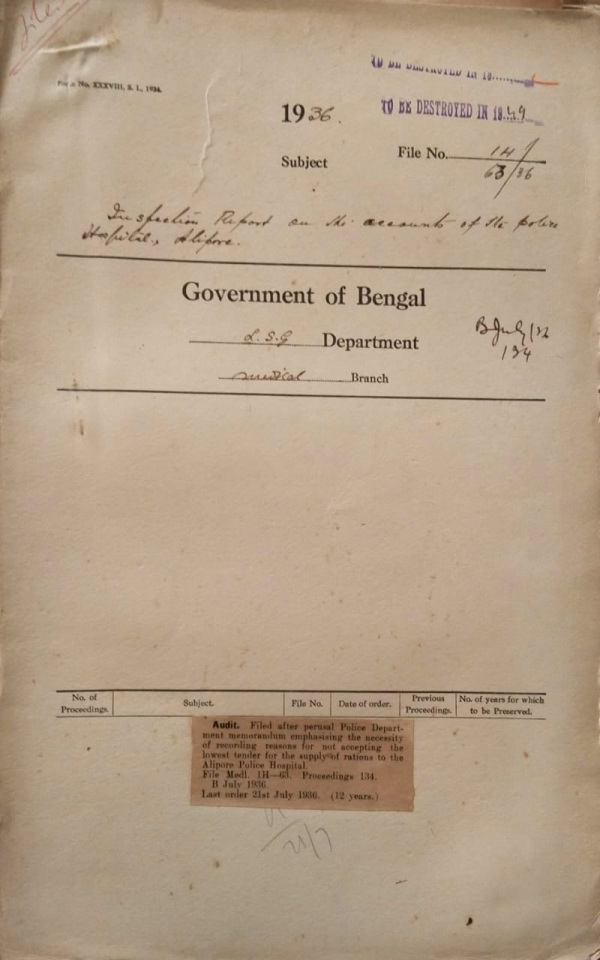 No. XXXVIII, S. I., 1934.
TO BE DESTROYED IN 19
TO BE DESTROYED IN 19 49
1936.
Subject
File No. 1H/
63/36
Inspection Report on the accounts of the police
Hospital, Alipore.
Government of Bengal
L.S.G Department
B July/36
134
Medical Branch
No. of Proceedings. Subject. File No. Date of order. Previous Proceedings. No. of years for which to be Preserved.
Audit. Filed after perusal Police Depart-
ment memorandum emphasising the necessity
of recording reasons for not accepting the
lowest tender for the supply of rations to the
Alipore Police Hospital.
File Medl. 1H—63. Proceedings 134.
B July 1936.
Last order 21st July 1936. (12 years.)
21/7